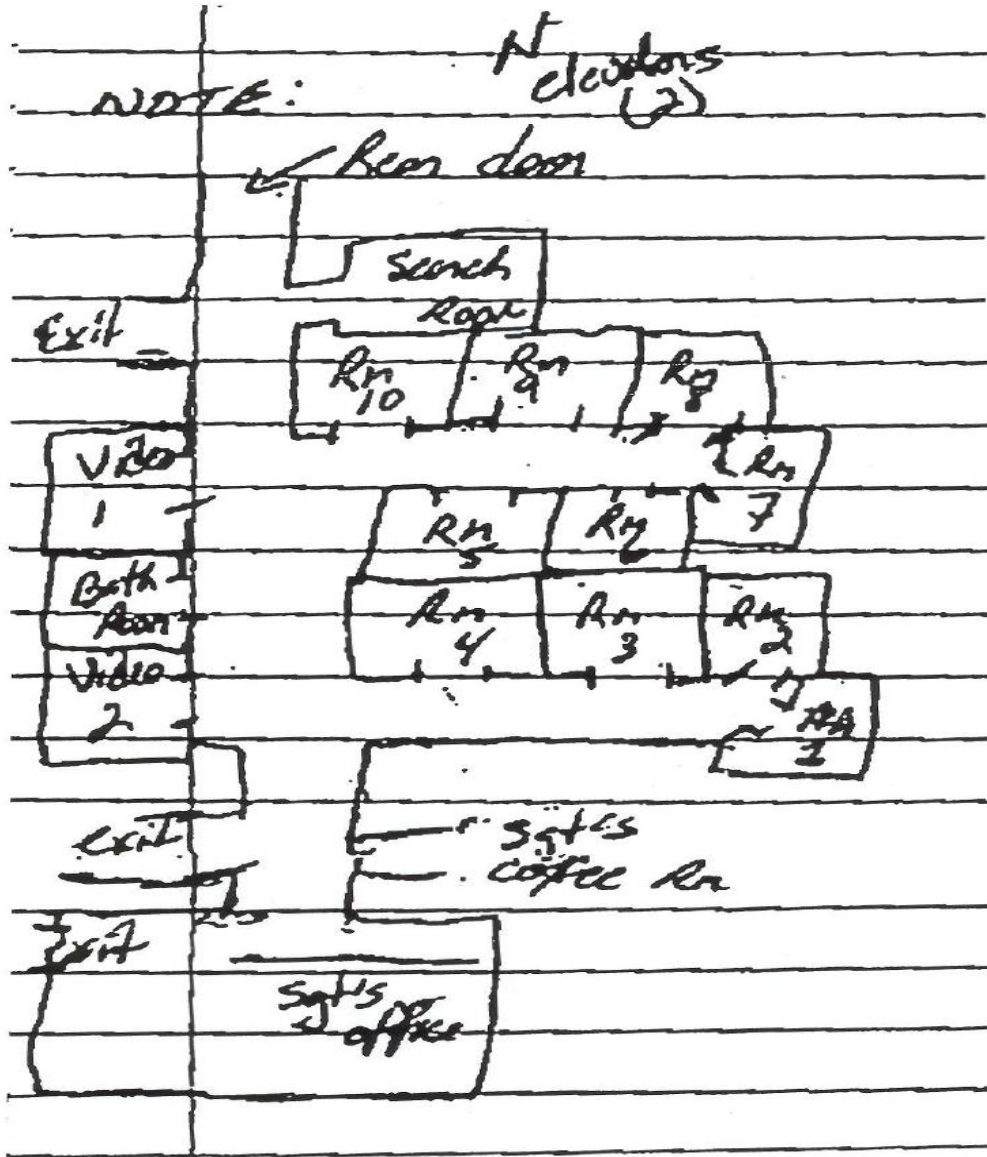 N
elevators
(2)
NOTE:
Rear door
Search
Room
Exit
Rm
10
Rm
9
Rm
8
Video
1
Rm
7
Rm
5
Rm
6
Bath
Room
Rm
4
Rm
3
Rm
2
Video
2
1
exit
Sgt's
coffee Rm
Exit
Sgt's
office